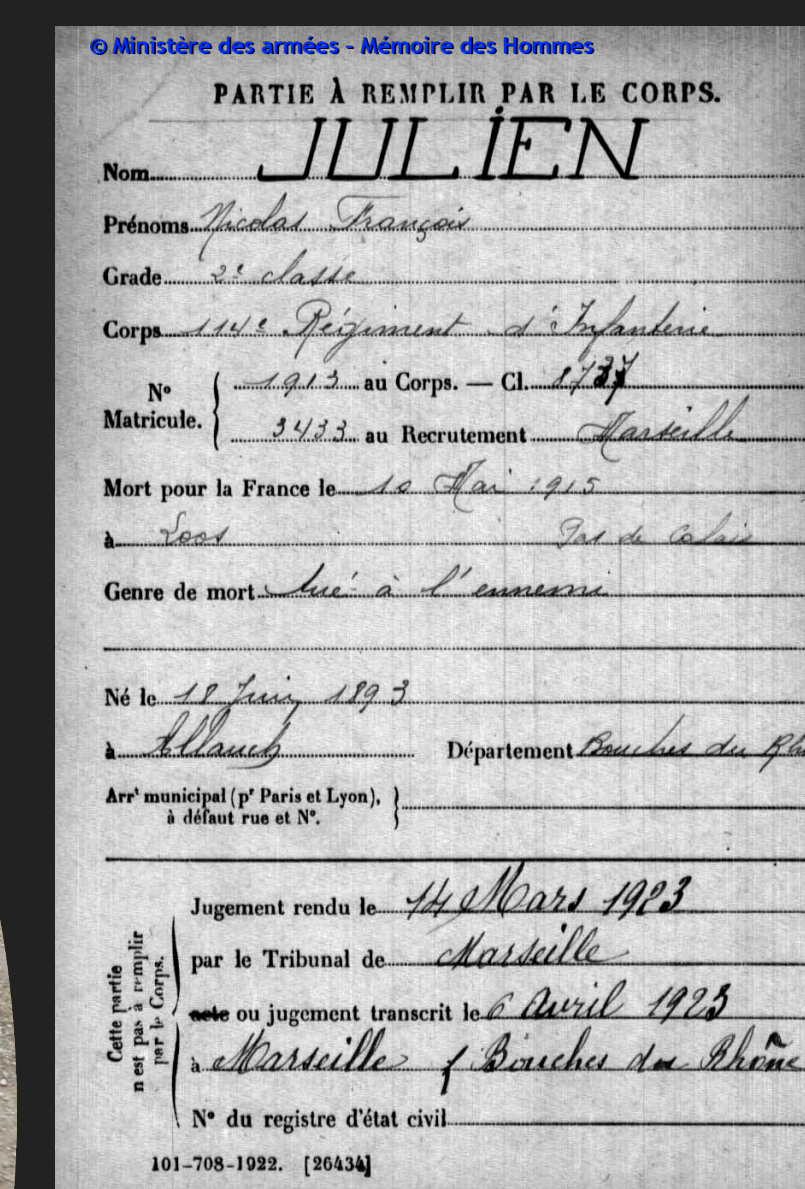 © Ministère des armées - Mémoire des Hommes
PARTIE À REMPLIR PAR LE CORPS.
Nom JULIEN
Prénoms Nicolas François
Grade 2e classe
Corps 114e Régiment d'Infanterie
No Matricule. { 1913 au Corps. — Cl.
3433 au Recrutement Marseille
Mort pour la France le 10 Mai 1915
à Loos Pas de Calais
Genre de mort tué à l'ennemi
Né le 18 Juin 1893
à Allauch Département Bouches du Rh
Arrt municipal (pr Paris et Lyon), }
à défaut rue et No.
Cette partie n'est pas à remplir par le Corps.
Jugement rendu le 14 Mars 1923
par le Tribunal de Marseille
acte ou jugement transcrit le 6 Avril 1923
à Marseille Bouches du Rhône
No du registre d'état civil
101-708-1922. [26434]